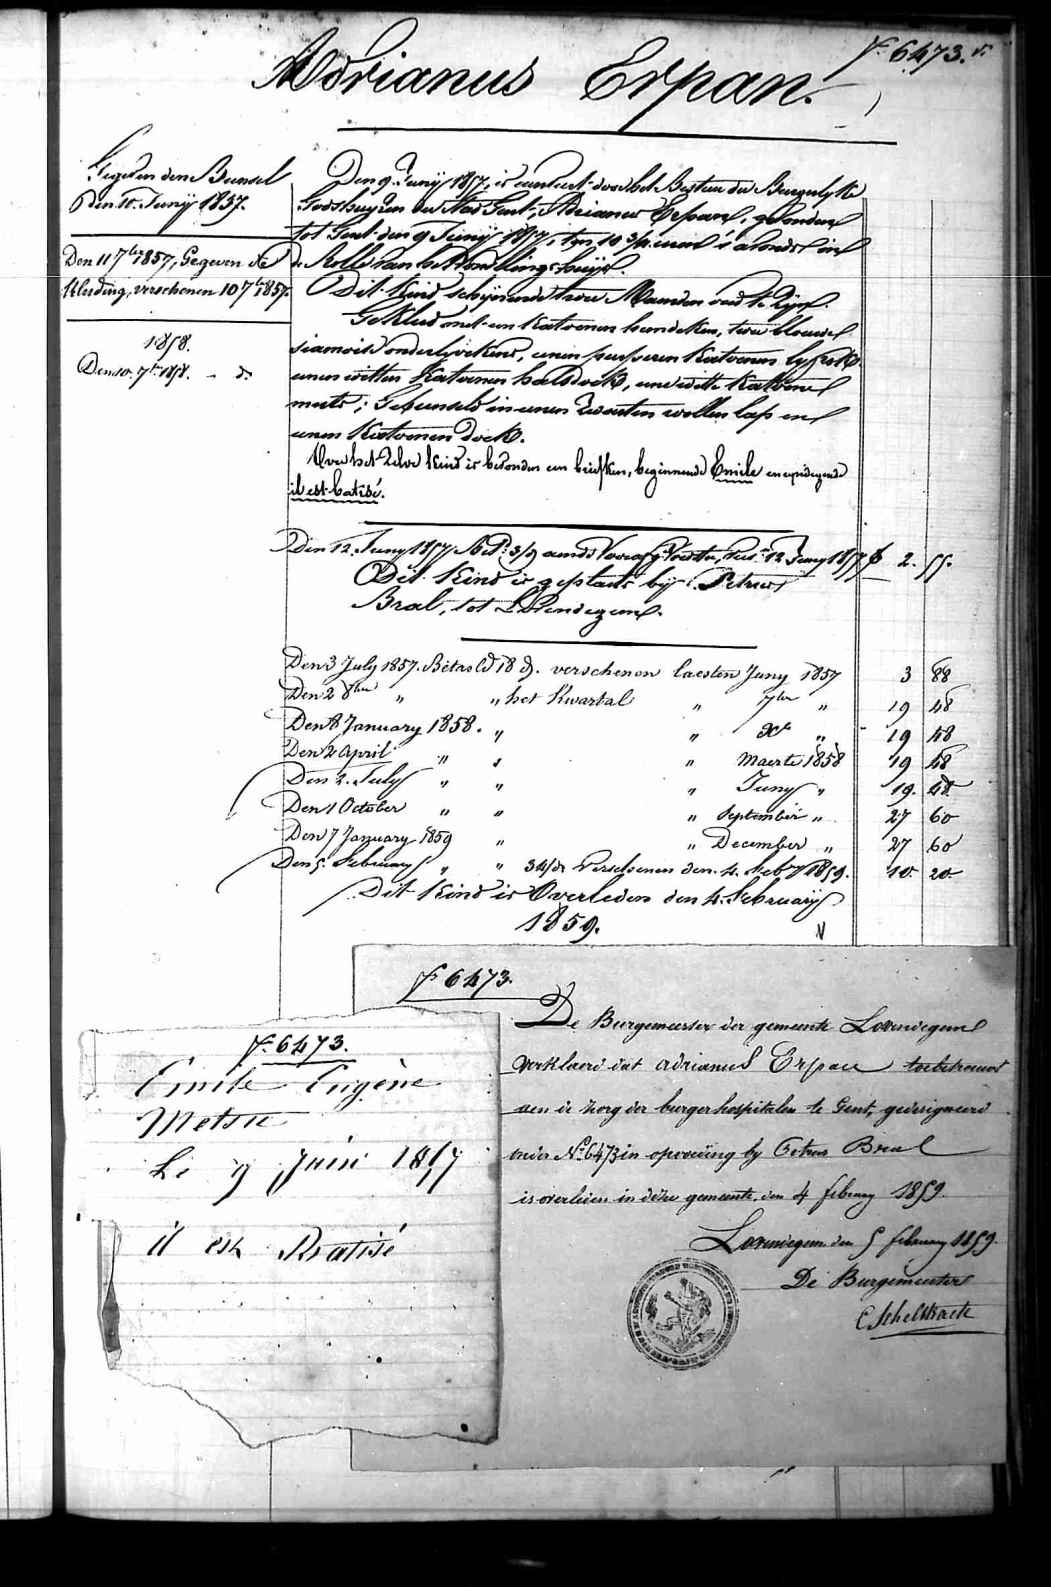 Nº 6473.
Adrianus Erpan.
Gegeven den Bunsel
Den 10 Junij 1857.
Den 11 7ber 1857, Gegeven de
Kleeding, verschenen 10 7ber 1857.
1858.
Den 10 7ber 1858. - do
Den 9 Junij 1857, is aenveert door het Bestuer der Burgerlyke
Godshuyzen der Stad Gent, Adrianus Erpan, gevonden
tot Gent den 9 Junij 1857, ten 10 3/4 uren 's avonds in
de Rolle van het Vondelingshuys.
Dit Kind schynende twee Maenden oud te Zyn.
Gekleed met een Katoenen hemdeken, twee blauwe
siamoise onderlyvekens, eenen purperen Katoenen lyfrok
eenen witten Katoenen halsdoek, eene witte Katoene
muts; Gebunseld in eenen Zwarten wollen lap en
eenen Katoenen doek.
Over het Zelve Kind is bevonden een briefken, beginnende Emile en eyndigende
il est batisé.
Den 12 Juny 1857 Bet: 3/9 aende Voorafg. Voedster, 12 Juny 1857 f 2. 55.
Dit Kind is geplaats by Petrus
Bral, tot Lovendegem.
Den 3 July 1857. Betaeld 18 d. verschenen laesten Juny 1857 3 88
Den 2 8ber " " het Kwartal " 7ber " 19 48
Den 8 January 1858. " " Xr " 19 48
Den 2 April " " " Maerte 1858 19 48
Den 2. July " " " Juny " 19. 48
Den 1 October " " " September " 27 60
Den 7 January 1859 " " December " 27 60
Den 5. February " " 34/d Verschenen den 4. feb 1859. 10. 20
Dit Kind is Overleden den 4 Februarij
1859.
Nº 6473.
De Burgemeester der gemeente Lovendegem
verklaerd dat Adrianus Erpan toebetrouwd
aen de zorg der burgerhospitalen te Gent, gedesigneerd
onder Nº 6473 in opvoeding by Petrus Bral
is overleden in deze gemeente, den 4 february 1859.
Lovendegem den 5 february 1859.
De Burgemeester
C Schelstraete
Nº 6473.
Emile Eugène
Metsu
Le 9 Juin 1857
il est Batisé